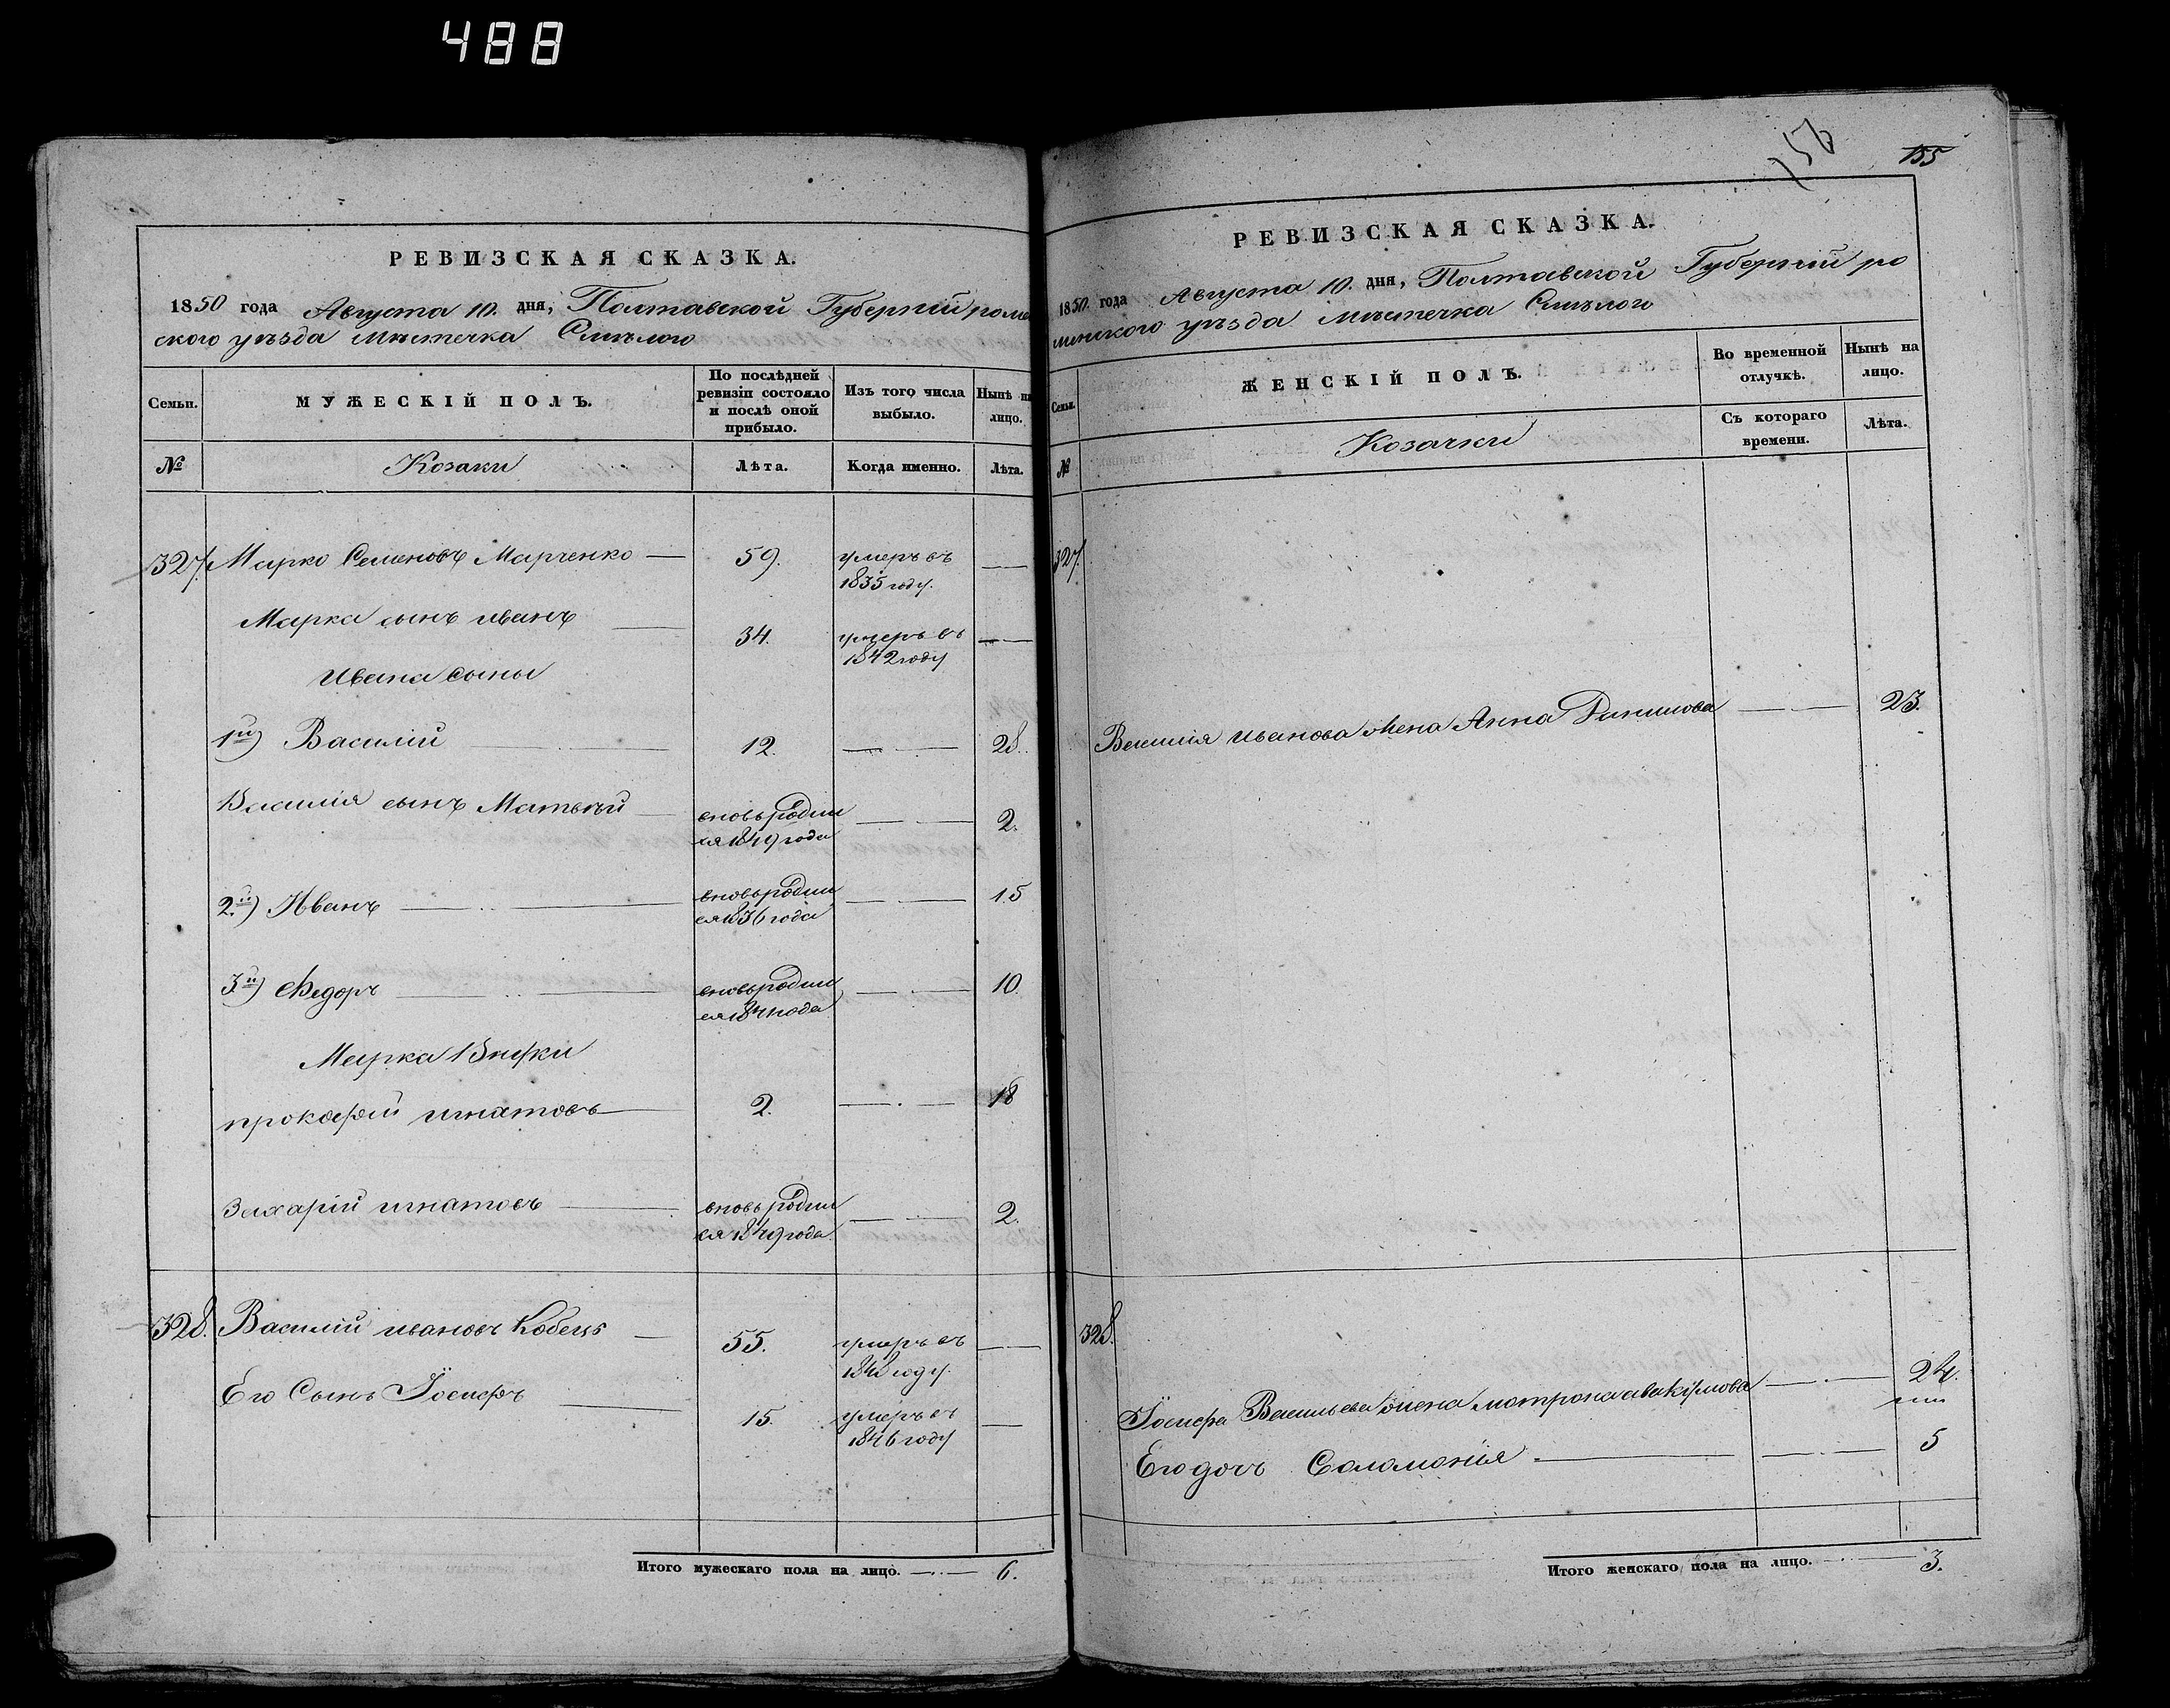 488
РЕВИЗСКАЯ СКАЗКА.
1850 года Августа 10. дня, Полтавской Губерніи роме
ского уѣзда мѣстечка Смѣлого
Семьи.
МУЖЕСКІЙ ПОЛЪ.
По послѣдней ревизіи состояло и послѣ оной прибыло.
Изъ того числа выбыло.
Нынѣ на лицо.
№
Козаки
Лѣта.
Когда именно.
Лѣта.
327. Марко Семеновъ Марченко — 59. умеръ въ 1835 году. —
Марка сынъ иванъ — 34. умеръ въ 1842 году —
Ивана сыны
1й) Василій 12. — 28.
Василія сынъ Матвѣй — вновь родил ся 1849 года — 2.
2.й) Иванъ — вновь родил ся 1836 года — 15
3.й) Федоръ — вновь родил ся 184 года — 10.
Марка Внуки
прокофій игнатовъ — 2. — 18
Захарій игнатовъ — вновь родил ся 1849 года. — 2.
328. Василій ивановъ Кобецъ — 55. умеръ въ 1848 году. —
Его Сынъ Іосифъ — 15. умеръ въ 1846 году —
Итого мужескаго пола на лицо. — 6.
156
155
РЕВИЗСКАЯ СКАЗКА.
1850 года Августа 10. дня, Полтавской Губерніи ро
менского уѣзда мѣстечка Смѣлого
Семьи.
ЖЕНСКІЙ ПОЛЪ.
Во временной отлучкѣ.
Нынѣ на лицо.
Съ котораго времени.
Лѣта.
№
Козачки
327.
Василія иванова жена Анна Данилова — 23.
328.
Іосифа Васильева жена мотрона авакумова — 24.
Его дочь Соломонія — 5
Итого женскаго пола на лицо. — 3.